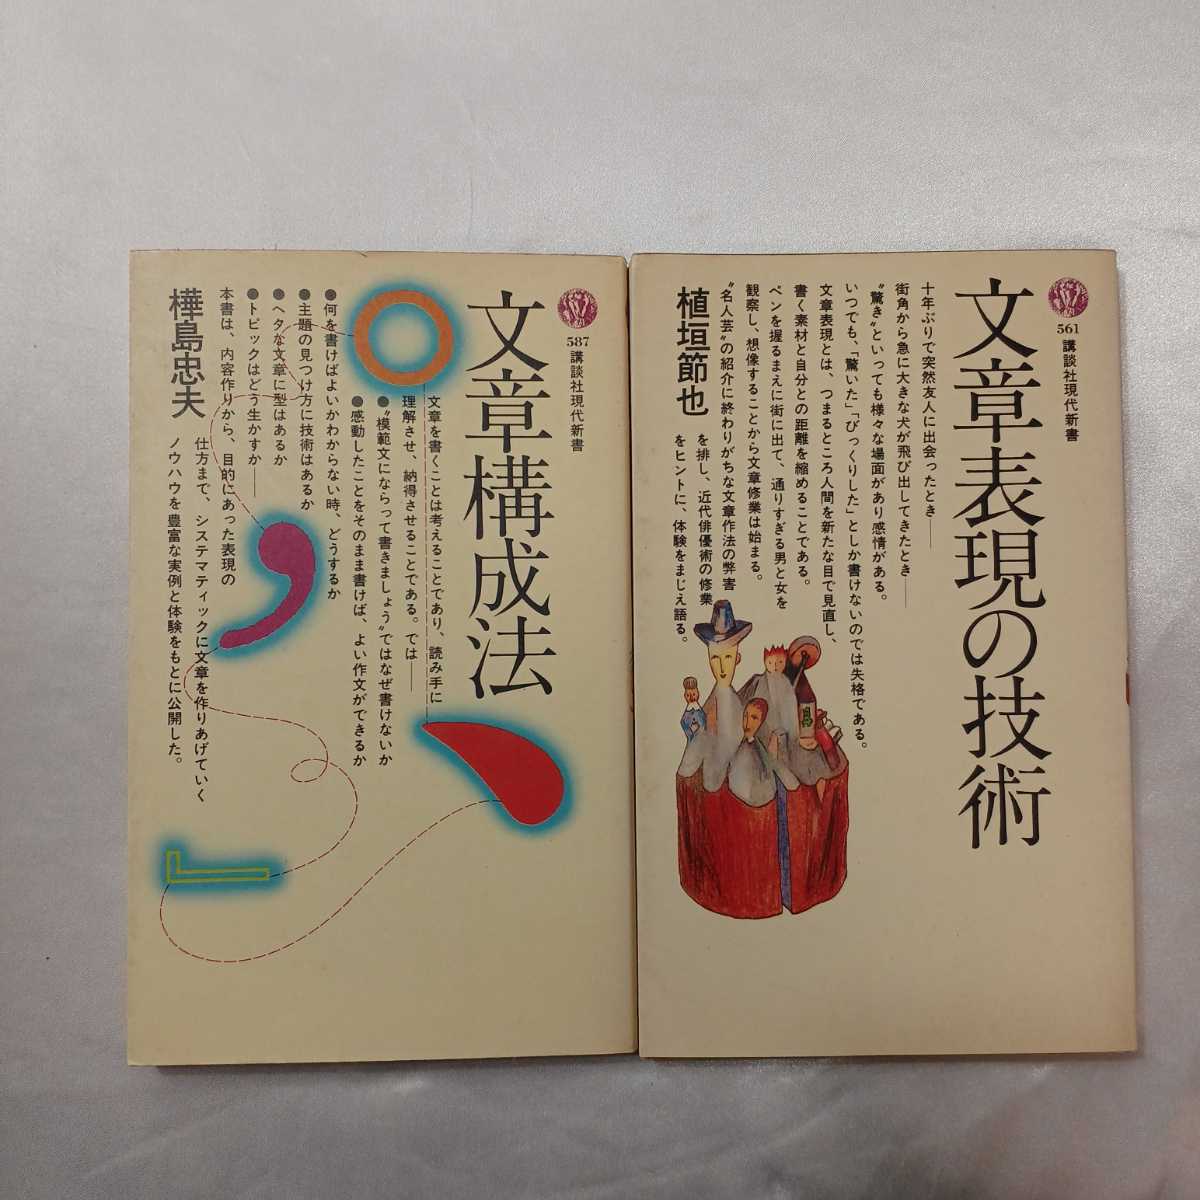 561
講談社現代新書
文章表現の技術
十年ぶりで突然友人に出会ったとき――
街角から急に大きな犬が飛び出してきたとき――
〝驚き〟といっても様々な場面があり感情がある。
いつでも、「驚いた」「びっくりした」としか書けないのでは失格である。
文章表現とは、つまるところ人間を新たな目で見直し、
書く素材と自分との距離を縮めることである。
ペンを握るまえに街に出て、通りすぎる男と女を
観察し、想像することから文章修業は始まる。
〝名人芸〟の紹介に終わりがちな文章作法の弊害
を排し、近代俳優術の修業
をヒントに、体験をまじえ語る。
植垣節也
587
講談社現代新書
文章構成法
文章を書くことは考えることであり、読み手に
理解させ、納得させることである。では――
●〝模範文にならって書きましょう〟ではなぜ書けないか
●感動したことをそのまま書けば、よい作文ができるか
●何を書けばよいかわからない時、どうするか
●主題の見つけ方に技術はあるか
●ヘタな文章に型はあるか
●トピックはどう生かすか――
本書は、内容作りから、目的にあった表現の
仕方まで、システマティックに文章を作りあげていく
ノウハウを豊富な実例と体験をもとに公開した。
樺島忠夫